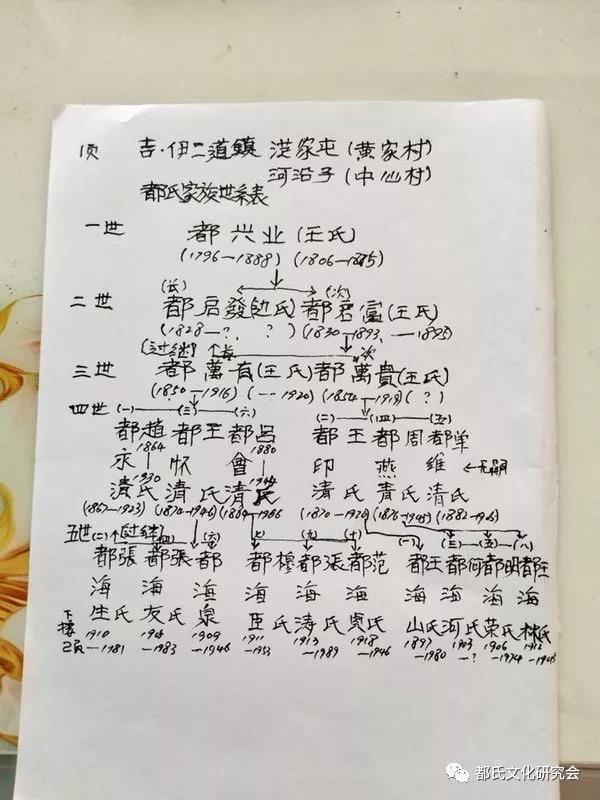 1页 吉·伊二道鎮 洪家屯(黄家村)
河沿子(中仙村)
都氏家族世系表
一世 都兴业(王氏)
(1796—1888) (1806—1875)
(长) (次)
二世 都启發 都启富(王氏)
(1828—?, ?) (1830—1893, —1895)
(过继) 长 次
三世 都萬有(王氏)都萬貴(王氏)
(1850—1916) (—1920) (1854—1919) (?)
四世 (一) (三) (六) (二) (四) (五)
都趙 都王 都吕 都王 都周 都单
永 怀 會 印 燕 维
1864 1930 1880
清氏 清氏 清氏 清氏 清氏 清氏
(1867—1923) (1874—1946) (1870—1926) (1876—1945)
五世 (二) (过继) (六) (七) (九) (十) (一) (三) (五) (八)
都張 都張 都 都穆 都張 都范 都王 都何 都明 都王
海 海 海 海 海 海 海 海 海 海
生氏 友氏 泉 臣氏 涛氏 贵氏 山氏 河氏 荣氏 林氏
下接 1910 1909 1911 1913 1918 1897 1903 1906 1912
2页 —1981 —1983 —1946 —1953 —1989 —1946 —1980 —? —1974
都氏文化研究会